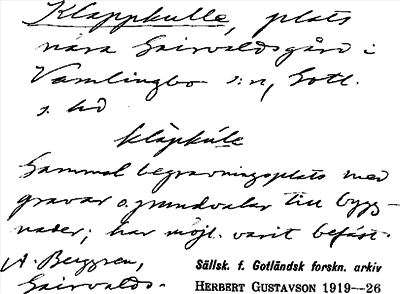 Kläppkulle, plats
nära Gairvaldsgård i
Vamlingbo s:n, Gotl.
s. hd
kläpkúle
Gammal begravningsplats med
gravar o. grundvalar till bygg-
nader; har möjl. varit befäst.
A. Berggren,
Gairvalds.
Sällsk. f. Gotländsk forskn. arkiv
HERBERT GUSTAVSON 1919--26